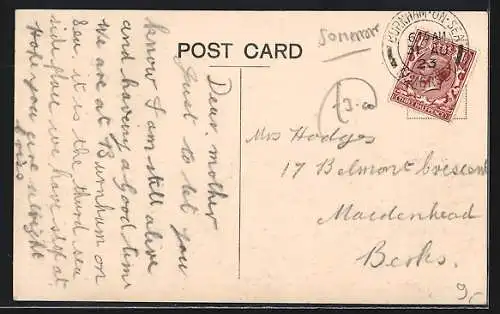 POST CARD
Sommor
BURNHAM-ON-SEA
6 15 AM
31 AU
23
Dear mother
Just to let you
know I am still alive
and having a Good time
we are at Burnham on
Sea. it is the third sea
side place we have slep at
Hope you are alright
Mrs Hodges
17 Belmont Crescent
Maidenhead
Berks.